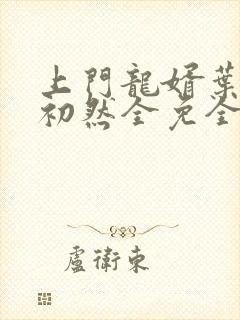 上門龍婿葉
初然全免全
盧衛東